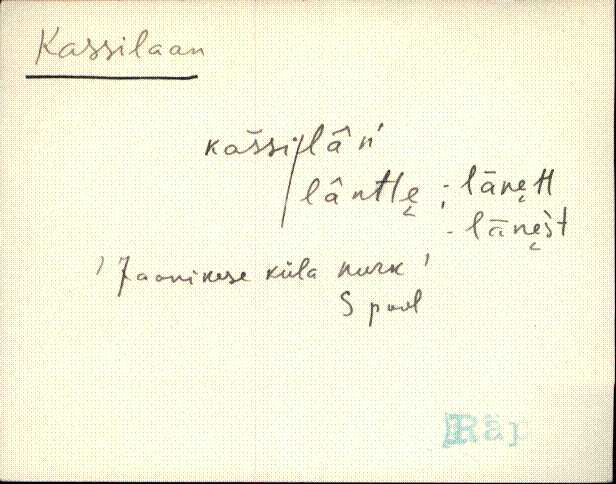 Kassilaan
kašsi/lâń
lântlę ; -lānętt
- lānęst
' Jaanikese küla nurk '
S pool
Räp